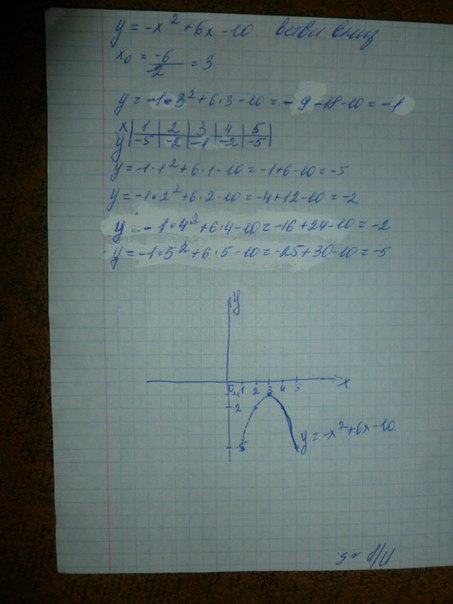 y = -x² + 6x - 10 ветви вниз
x₀ = -6/-2 = 3
y = -1·3² + 6·3 - 10 = -9 - 18 - 10 = -1
x | 1 | 2 | 3 | 4 | 5
y | -5 | -2 | -1 | -2 | -5
y = -1·1² + 6·1 - 10 = -1 + 6 - 10 = -5
y = -1·2² + 6·2 - 10 = -4 + 12 - 10 = -2
y = -1·4² + 6·4 - 10 = -16 + 24 - 10 = -2
y = -1·5² + 6·5 - 10 = -25 + 30 - 10 = -5
y
0 1 2 3 4 5 x
-2
-5
y = -x² + 6x - 10.